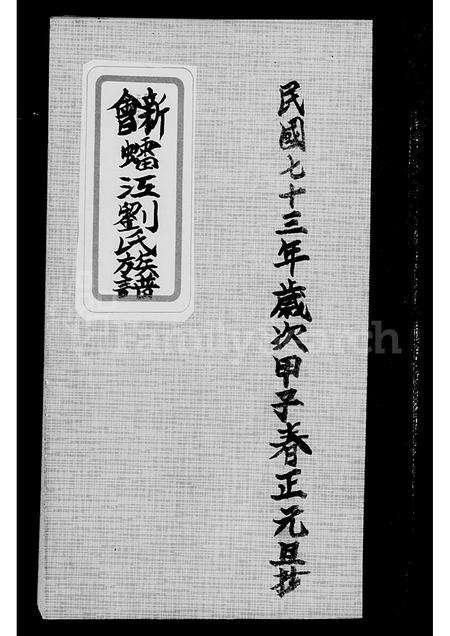 民國七十三年歲次甲子春正元旦抄
新會
蟠江劉氏族譜
FamilySearch